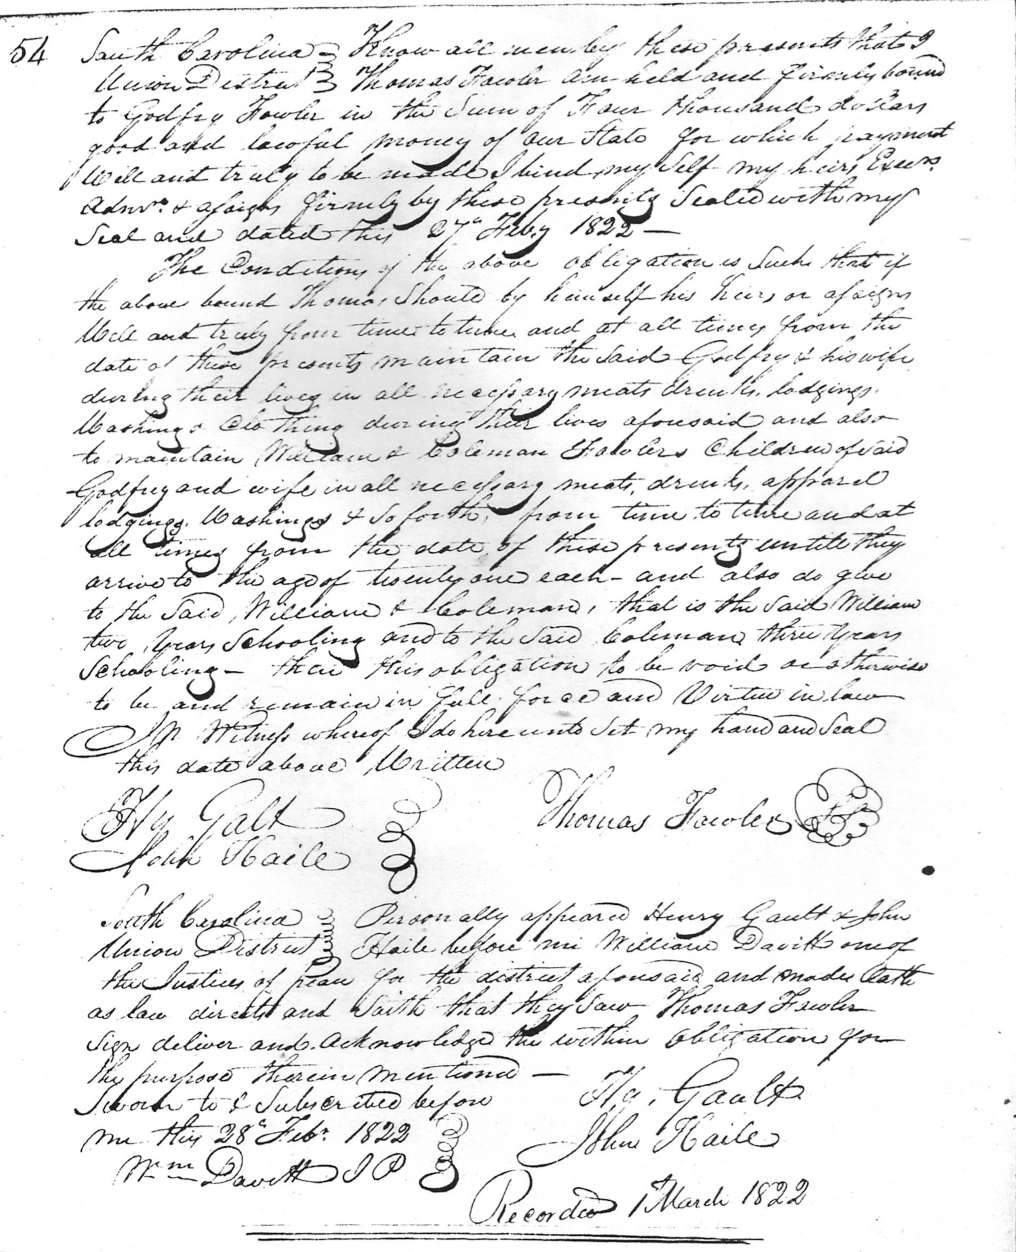 54
South Carolina Know all men by these presents that I
Union District Thomas Fowler am held and firmly bound
to Godfry Fowler in the Sum of Four thousand dollars
good and lawful money of our State for which payment
Well and truly to be made I bind my Self my heirs Exec.rs
Admr.s & assigns firmly by these presents Sealed with my
Seal and dated this 27th Feby 1822 —
The Conditions of the above obligation is Such that if
the above bound Thomas Should by himself his heirs or assigns
Well and truly from time to time and at all times from the
date of these presents maintain the Said Godfry & his wife
during their lives in all necessary meats drinks, lodgings,
Washings Clothing during their lives aforesaid and also
to maintain William & Coleman Fowlers Children of Said
Godfrey and wife in all necessary meats, drinks, apparel
lodgings, Washings & So forth, from time to time and at
all times from the date of these presents untill they
arrive to the age of twenty one each – and also do give
to the Said William & Coleman, that is the Said William
two years Schooling and to the Said Coleman three years
Schooling – then this obligation to be void or otherwise
to be and remain in full force and Virtue in law
In Witness whereof I do hereunto Set my hand and Seal
this date above Written
Hy Galt Thomas Fowler
John Haile
South Carolina Personally appeared Henry Gault & John
Union District Haile before me William Davitt one of
the Justices of peace for the district aforesaid and made Oath
as law directs and Saith that they Saw Thomas Fowler
Sign deliver and Acknowledge the within Obligation for
the purpose therein mentioned —
Sworn to & Subscribed before Hy. Gault
me this 28th Feb.r 1822 John Haile
Wm Davitt J P
Recorded 1st March 1822